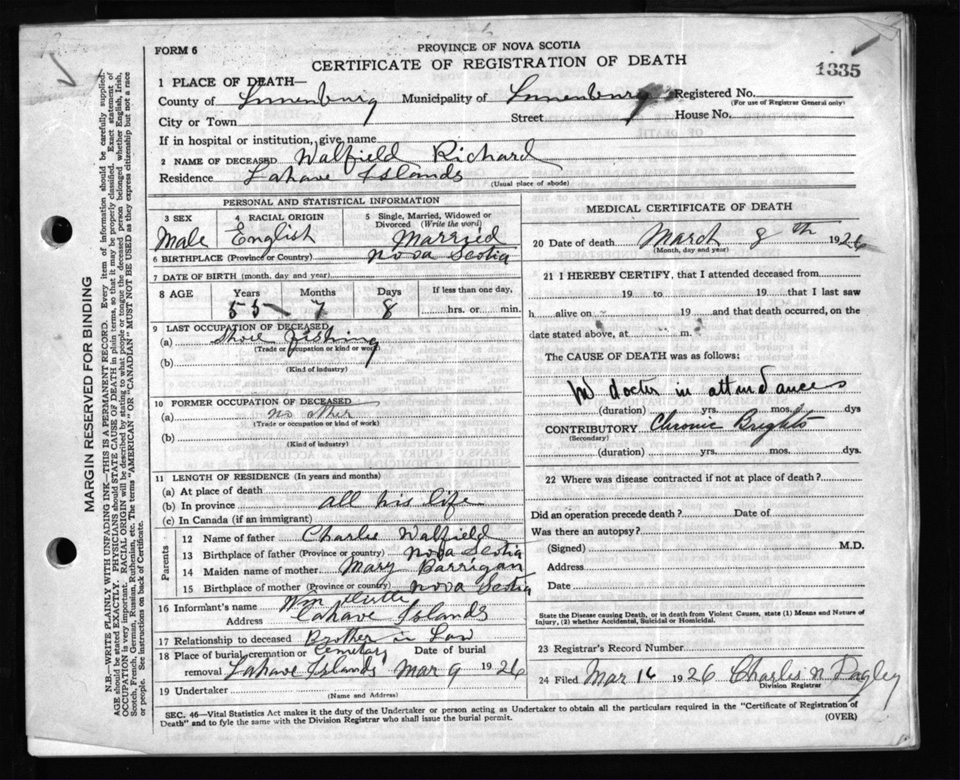 PROVINCE OF NOVA SCOTIA
FORM 6
CERTIFICATE OF REGISTRATION OF DEATH
1335
1 PLACE OF DEATH—
County of Lunenburg Municipality of Lunenburg Registered No.
(For use of Registrar General only)
City or Town Street House No.
If in hospital or institution, give name
2 NAME OF DECEASED Walfield Richard
Residence Lahave Islands
(Usual place of abode)
PERSONAL AND STATISTICAL INFORMATION
3 SEX 4 RACIAL ORIGIN 5 Single, Married, Widowed or Divorced (Write the word)
Male English Married
6 BIRTHPLACE (Province or Country) Nova Scotia
7 DATE OF BIRTH (month, day and year)
8 AGE Years Months Days If less than one day,
55 7 8 hrs. or min.
9 LAST OCCUPATION OF DECEASED
(a) Shore fishing
(Trade or occupation or kind or work)
(b)
(Kind of industry)
10 FORMER OCCUPATION OF DECEASED
(a) no other
(Trade or occupation or kind of work)
(b)
(Kind of industry)
11 LENGTH OF RESIDENCE (In years and months)
(a) At place of death
(b) In province all his life
(c) In Canada (if an immigrant)
Parents
12 Name of father Charlie Walfield
13 Birthplace of father (Province or country) Nova Scotia
14 Maiden name of mother Mary Barrigan
15 Birthplace of mother (Province or country) Nova Scotia
16 Informant's name Wm
Address Lahave Islands
17 Relationship to deceased Brother in Law
18 Place of burial, cremation or Cemetary Date of burial
removal Lahave Islands Mar 9 1926
19 Undertaker
(Name and Address)
MEDICAL CERTIFICATE OF DEATH
20 Date of death March 8th 1926
(Month, day and year)
21 I HEREBY CERTIFY, that I attended deceased from
19 to 19 that I last saw
h alive on 19 and that death occurred, on
date stated above, at m.
The CAUSE OF DEATH was as follows:
No doctor in attendances
(duration) yrs. mos. dys
CONTRIBUTORY Chronic Brights
(Secondary)
(duration) yrs. mos. dys.
22 Where was disease contracted if not at place of death?
Did an operation precede death? Date of
Was there an autopsy?
(Signed) M.D.
Address
Date
State the Disease causing Death, or in death from Violent Causes, state (1) Means and Nature of
Injury, (2) whether Accidental, Suicidal or Homicidal.
23 Registrar's Record Number
24 Filed Mar 16 1926 Charles N Dagley
Division Registrar
SEC. 46—Vital Statistics Act makes it the duty of the Undertaker or person acting as Undertaker to obtain all the particulars required in the "Certificate of Registration of
Death" and to fyle the same with the Division Registrar who shall issue the burial permit.
(OVER)
MARGIN RESERVED FOR BINDING
N.B.—WRITE PLAINLY WITH UNFADING INK—THIS IS A PERMANENT RECORD. Every item of information should be carefully supplied.
AGE should be stated EXACTLY. PHYSICIANS should STATE CAUSE OF DEATH in plain terms, so that it may be properly classified. Exact statement of
OCCUPATION is very important. RACIAL ORIGIN will be described by stating to what people or tongue the deceased person belonged whether English, Irish,
Scotch, French, German, Russian, Ruthenian, etc. The terms "AMERICAN" OR "CANADIAN" MUST NOT BE USED as they express citizenship but not a race
or people. See instructions on back of Certificate.